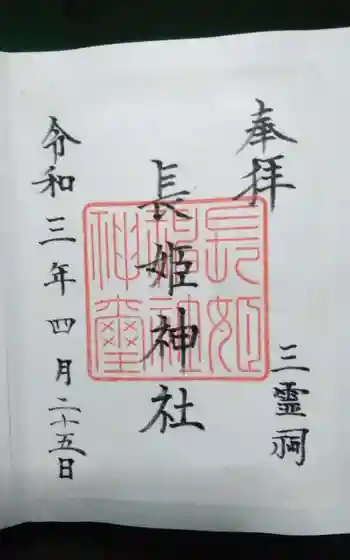 奉拝
三霊祠
長姫神社
長姫
神社
神璽
令和三年四月二十五日